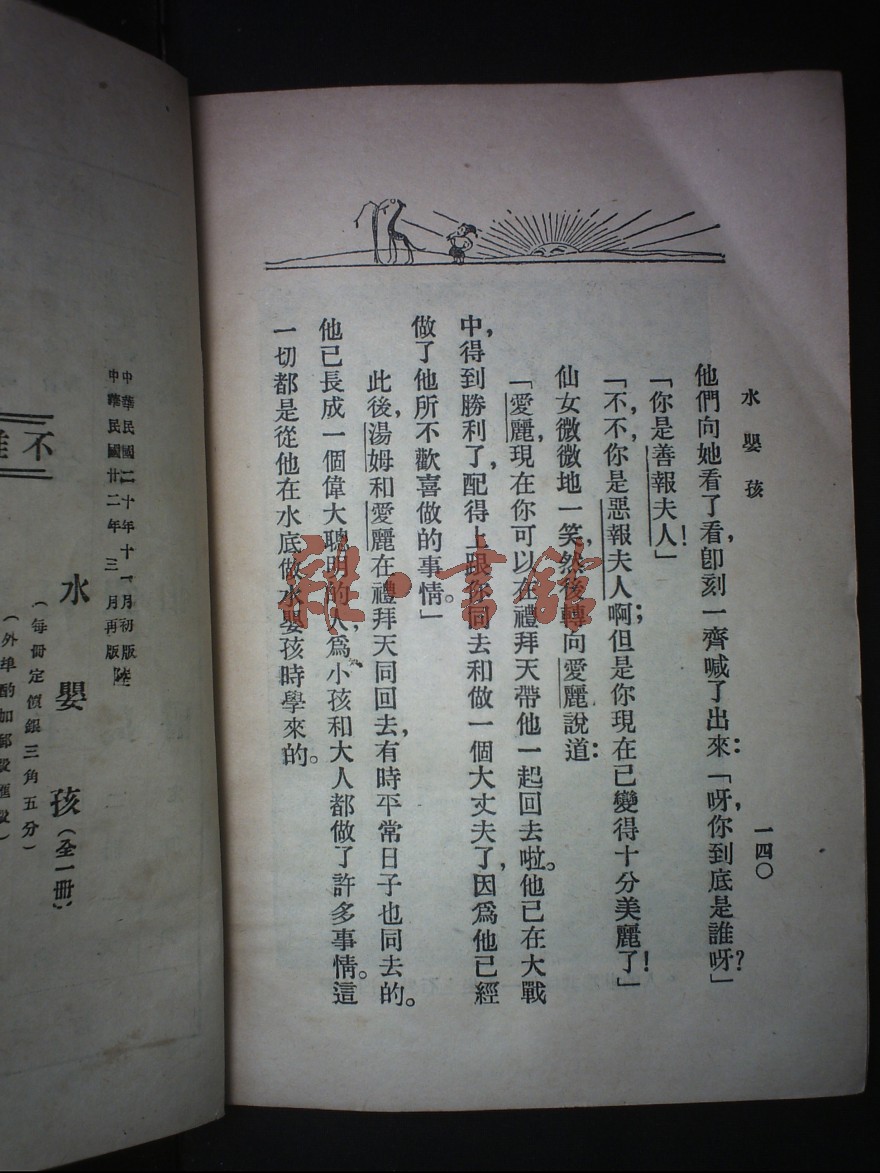 水嬰孩
一四〇
他們向她看了看,卽刻一齊喊了出來:「呀,你到底是誰呀?」
「你是善報夫人!」
「不,不,你是惡報夫人啊;但是你現在已變得十分美麗了!」
仙女微微地一笑,然後轉向愛麗說道:
「愛麗,現在你可以在禮拜天帶他一起回去啦。他已在大戰
中,得到勝利了,配得上跟你同去和做一個大丈夫了,因爲他已經
做了他所不歡喜做的事情。」
此後,湯姆和愛麗在禮拜天同回去,有時平常日子也同去的。
他已長成一個偉大聰明的人,爲小孩和大人都做了許多事情。這
一切都是從他在水底做水嬰孩時學來的。
雅·書館
中華民國二十年十一月初版
中華民國廿二年三月再版
不
水嬰孩(全一冊)
(每冊定價銀三角五分)
(外埠酌加郵費匯費)